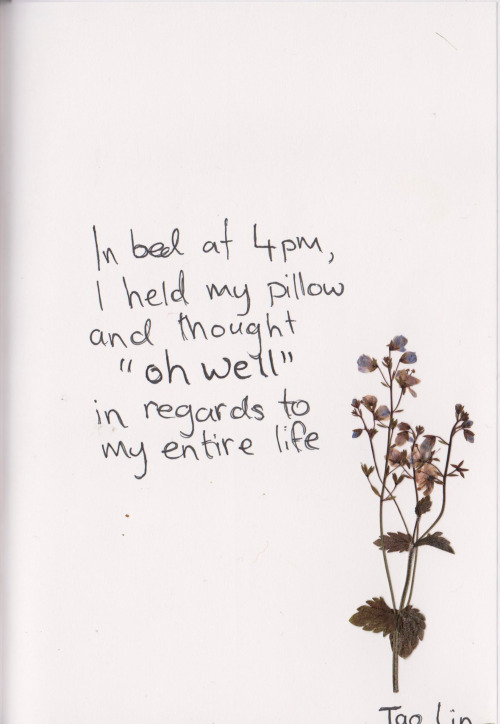 In bed at 4pm,
I held my pillow
and thought
"oh well"
in regards to
my entire life
Tao Lin